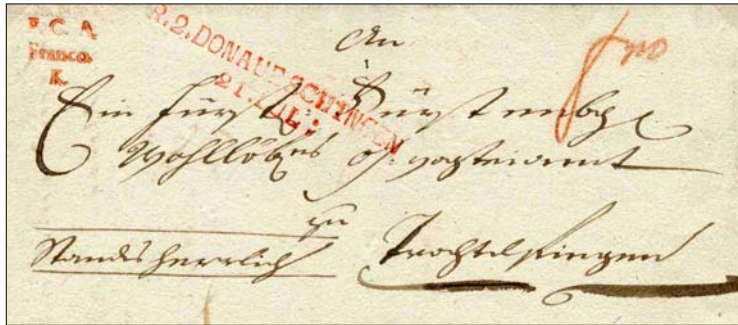 F. C. A.
Franco.
K.
R.2.DONAUESCHINGEN
21.JUL:
An
Ein Fürstl: Fürstenbg
Wohllöbes
zu
Standesherrlich Trochtelfingen